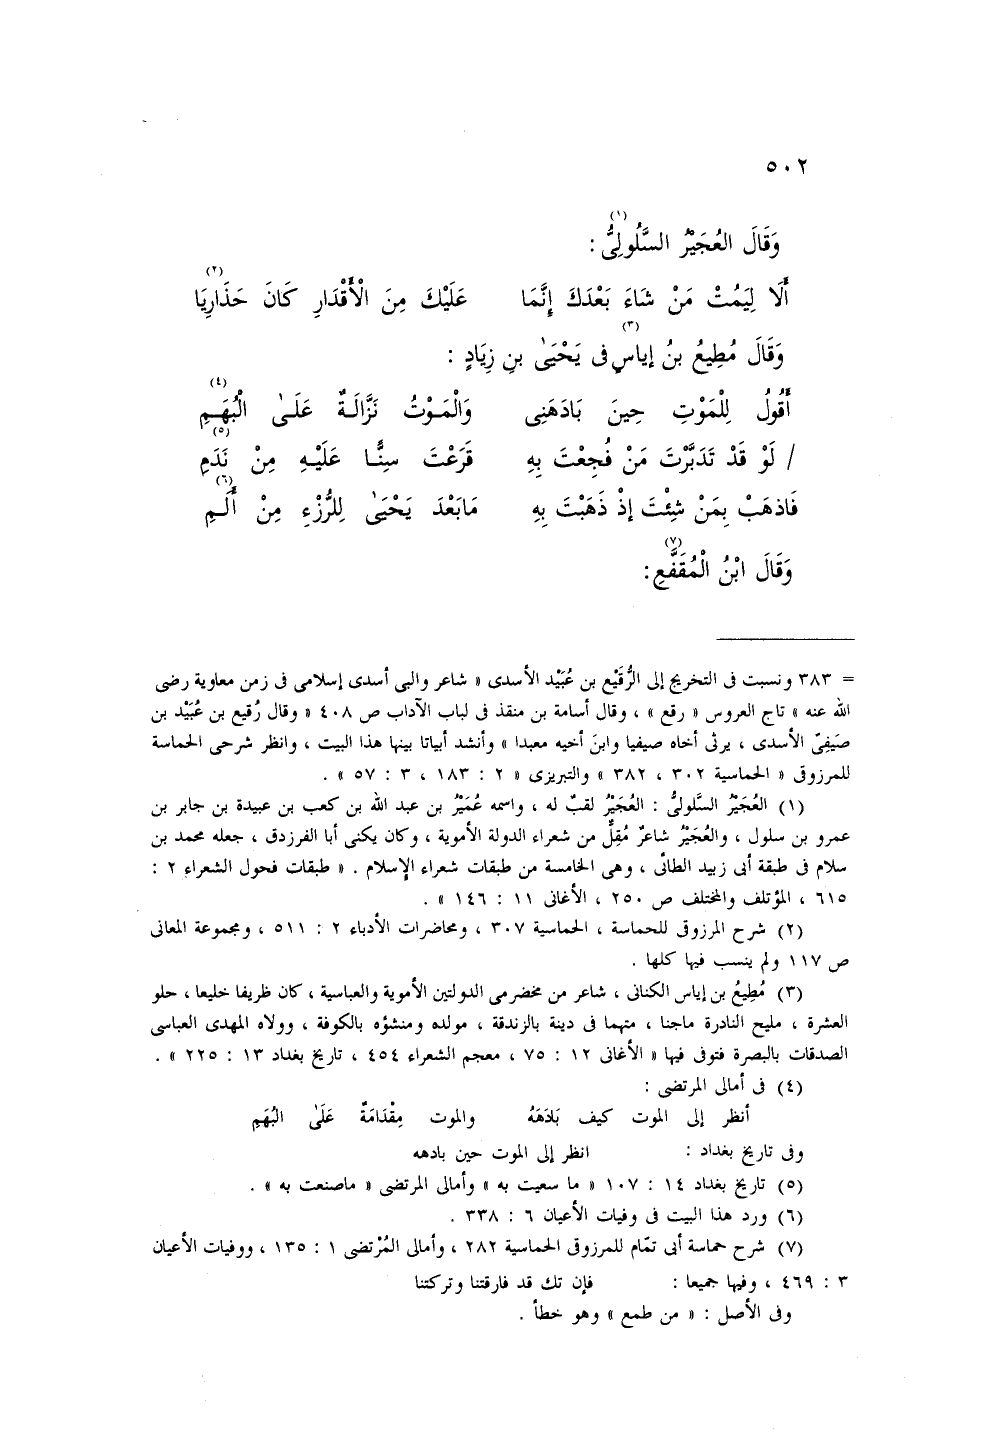 ٥٠٢
وَقَالَ العُجَيْرُ السَّلُولِىُّ (١) :
أَلَا لِيَمُتْ مَنْ شَاءَ بَعْدَكَ إِنَّمَا عَلَيْكَ مِنَ الْأَقْدَارِ كَانَ حَذَارِيَا (٢)
وَقَالَ مُطِيعُ بنُ إياسٍ (٣) فى يَحْيَىٰ بنِ زِيَادٍ :
أَقُولُ لِلْمَوْتِ حِينَ بَادَهَنِى وَالْمَوْتُ نَزَّالَةٌ عَلَىٰ الْبُهَمِ (٤)
/ لَوْ قَدْ تَدَبَّرْتَ مَنْ فُجِعْتَ بِهِ قَرَعْتَ سِنًّا عَلَيْهِ مِنْ نَدَمِ (٥)
فَاذهَبْ بِمَنْ شِئْتَ إذْ ذَهَبْتَ بِهِ مَابَعْدَ يَحْيَىٰ لِلرُّزْءِ مِنْ أَلَمِ (٦)
وَقَالَ ابْنُ الْمُقَفَّعِ (٧) :
= ٣٨٣ ونسبت فى التخريج إلى الرُّقَيْع بن عُبَيْد الأسدى « شاعر والبى أسدى إسلامى فى زمن معاوية رضى
الله عنه » تاج العروس « رقع » ، وقال أسامة بن منقذ فى لباب الآداب ص ٤٠٨ « وقال رُقيع بن عُبَيْد بن
صَيَفِىّ الأسدى ، يرثى أخاه صيفيا وابنَ أخيه معبدا » وأنشد أبياتا بينها هذا البيت ، وانظر شرحى الحماسة
للمرزوقى « الحماسية ٣٠٢ ، ٣٨٢ » والتبريزى « ٢ : ١٨٣ ، ٣ : ٥٧ » .
(١) العُجَيْرُ السَّلولىُّ : العُجَيْرُ لقبٌ له ، واسمه عُمَيْرُ بن عبد الله بن كعب بن عبيدة بن جابر بن
عمرو بن سلول ، والعُجَيْرُ شاعرٌ مُقِلٌّ من شعراء الدولة الأموية ، وكان يكنى أبا الفرزدق ، جعله محمد بن
سلام فى طبقة أبى زبيد الطائى ، وهى الخامسة من طبقات شعراء الإسلام . « طبقات فحول الشعراء ٢ :
٦١٥ ، المؤتلف والمختلف ص ٢٥٠ ، الأغانى ١١ : ١٤٦ » .
(٢) شرح المرزوقى للحماسة ، الحماسية ٣٠٧ ، ومحاضرات الأدباء ٢ : ٥١١ ، ومجموعة المعانى
ص ١١٧ ولم ينسب فيها كلها .
(٣) مُطِيعُ بن إياس الكنانى ، شاعر من مخضرمى الدولتين الأموية والعباسية ، كان ظريفا خليعا ، حلو
العشرة ، مليح النادرة ماجنا ، متهما فى دينة بالزندقة ، مولده ومنشؤه بالكوفة ، وولاه المهدى العباسى
الصدقات بالبصرة فتوفى فيها « الأغانى ١٢ : ٧٥ ، معجم الشعراء ٤٥٤ ، تاريخ بغداد ١٣ : ٢٢٥ » .
(٤) فى أمالى المرتضى :
أنظر إلى الموت كيف بَادَهَهُ والموت مِقْدَامَةٌ عَلَىٰ البُهَمِ
وفى تاريخ بغداد : انظر إلى الموت حين بادهه
(٥) تاريخ بغداد ١٤ : ١٠٧ « ما سعيت به » وأمالى المرتضى « ماصنعت به » .
(٦) ورد هذا البيت فى وفيات الأعيان ٦ : ٣٣٨ .
(٧) شرح حماسة أبى تمّام للمرزوقى الحماسية ٢٨٢ ، وأمالى المُرْتضى ١ : ١٣٥ ، ووفيات الأعيان
٣ : ٤٦٩ ، وفيها جميعا : فإن تك قد فارقتنا وتركتنا
وفى الأصل : « من طمع » وهو خطأ .